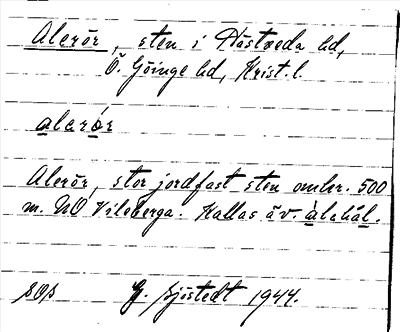 Alerör, sten i Hästveda sd,
Ö. Göinge hd, Krist. l.
alerör
Alerör, stor jordfast sten omkr. 500
m. NO Vileberga. Kallas äv. àlahál.
SOS G. Sjöstedt 1944.